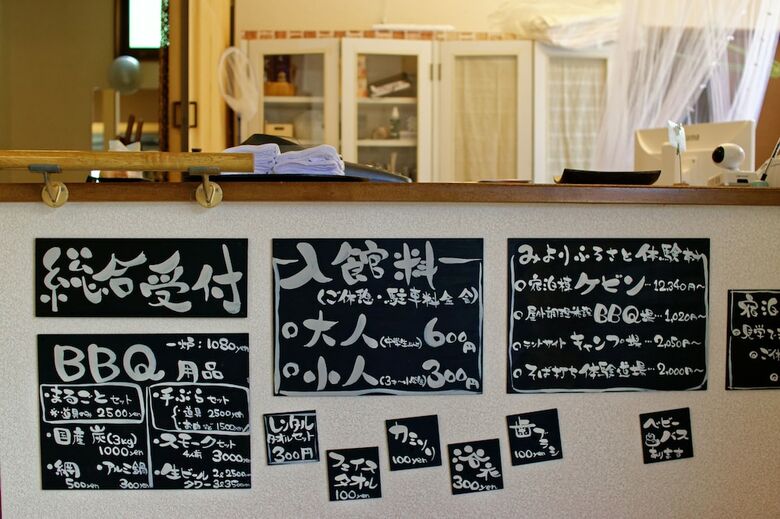 総合受付
入館料
(ご休憩・駐車料金含)
大人(中学生以上)600円
小人(3才〜小学生)300円
みよりふるさと体験村
宿泊棟 ケビン…12,340円〜
屋外調理施設 BBQ場…1,020円〜
テントサイト キャンプ場…2,050円〜
そば打ち体験道場…2,000円〜
宿泊
見学で
BBQ用品
一炉:1080yen
・まるごとセット
2500yen
・手ぶらセット
道具 2500yen
1500yen
・国産炭(3kg)
1000yen
・スモークセット
3000yen
・網
500yen
・アルミ鍋
300yen
・生ビール 2ℓ2500yen
タワー 3ℓ3500yen
レンタル
タオルセット
300円
フェイス
タオル
100yen
カミソリ
100yen
浴衣
300yen
歯ブラシ
100yen
ベビー
バス
あります